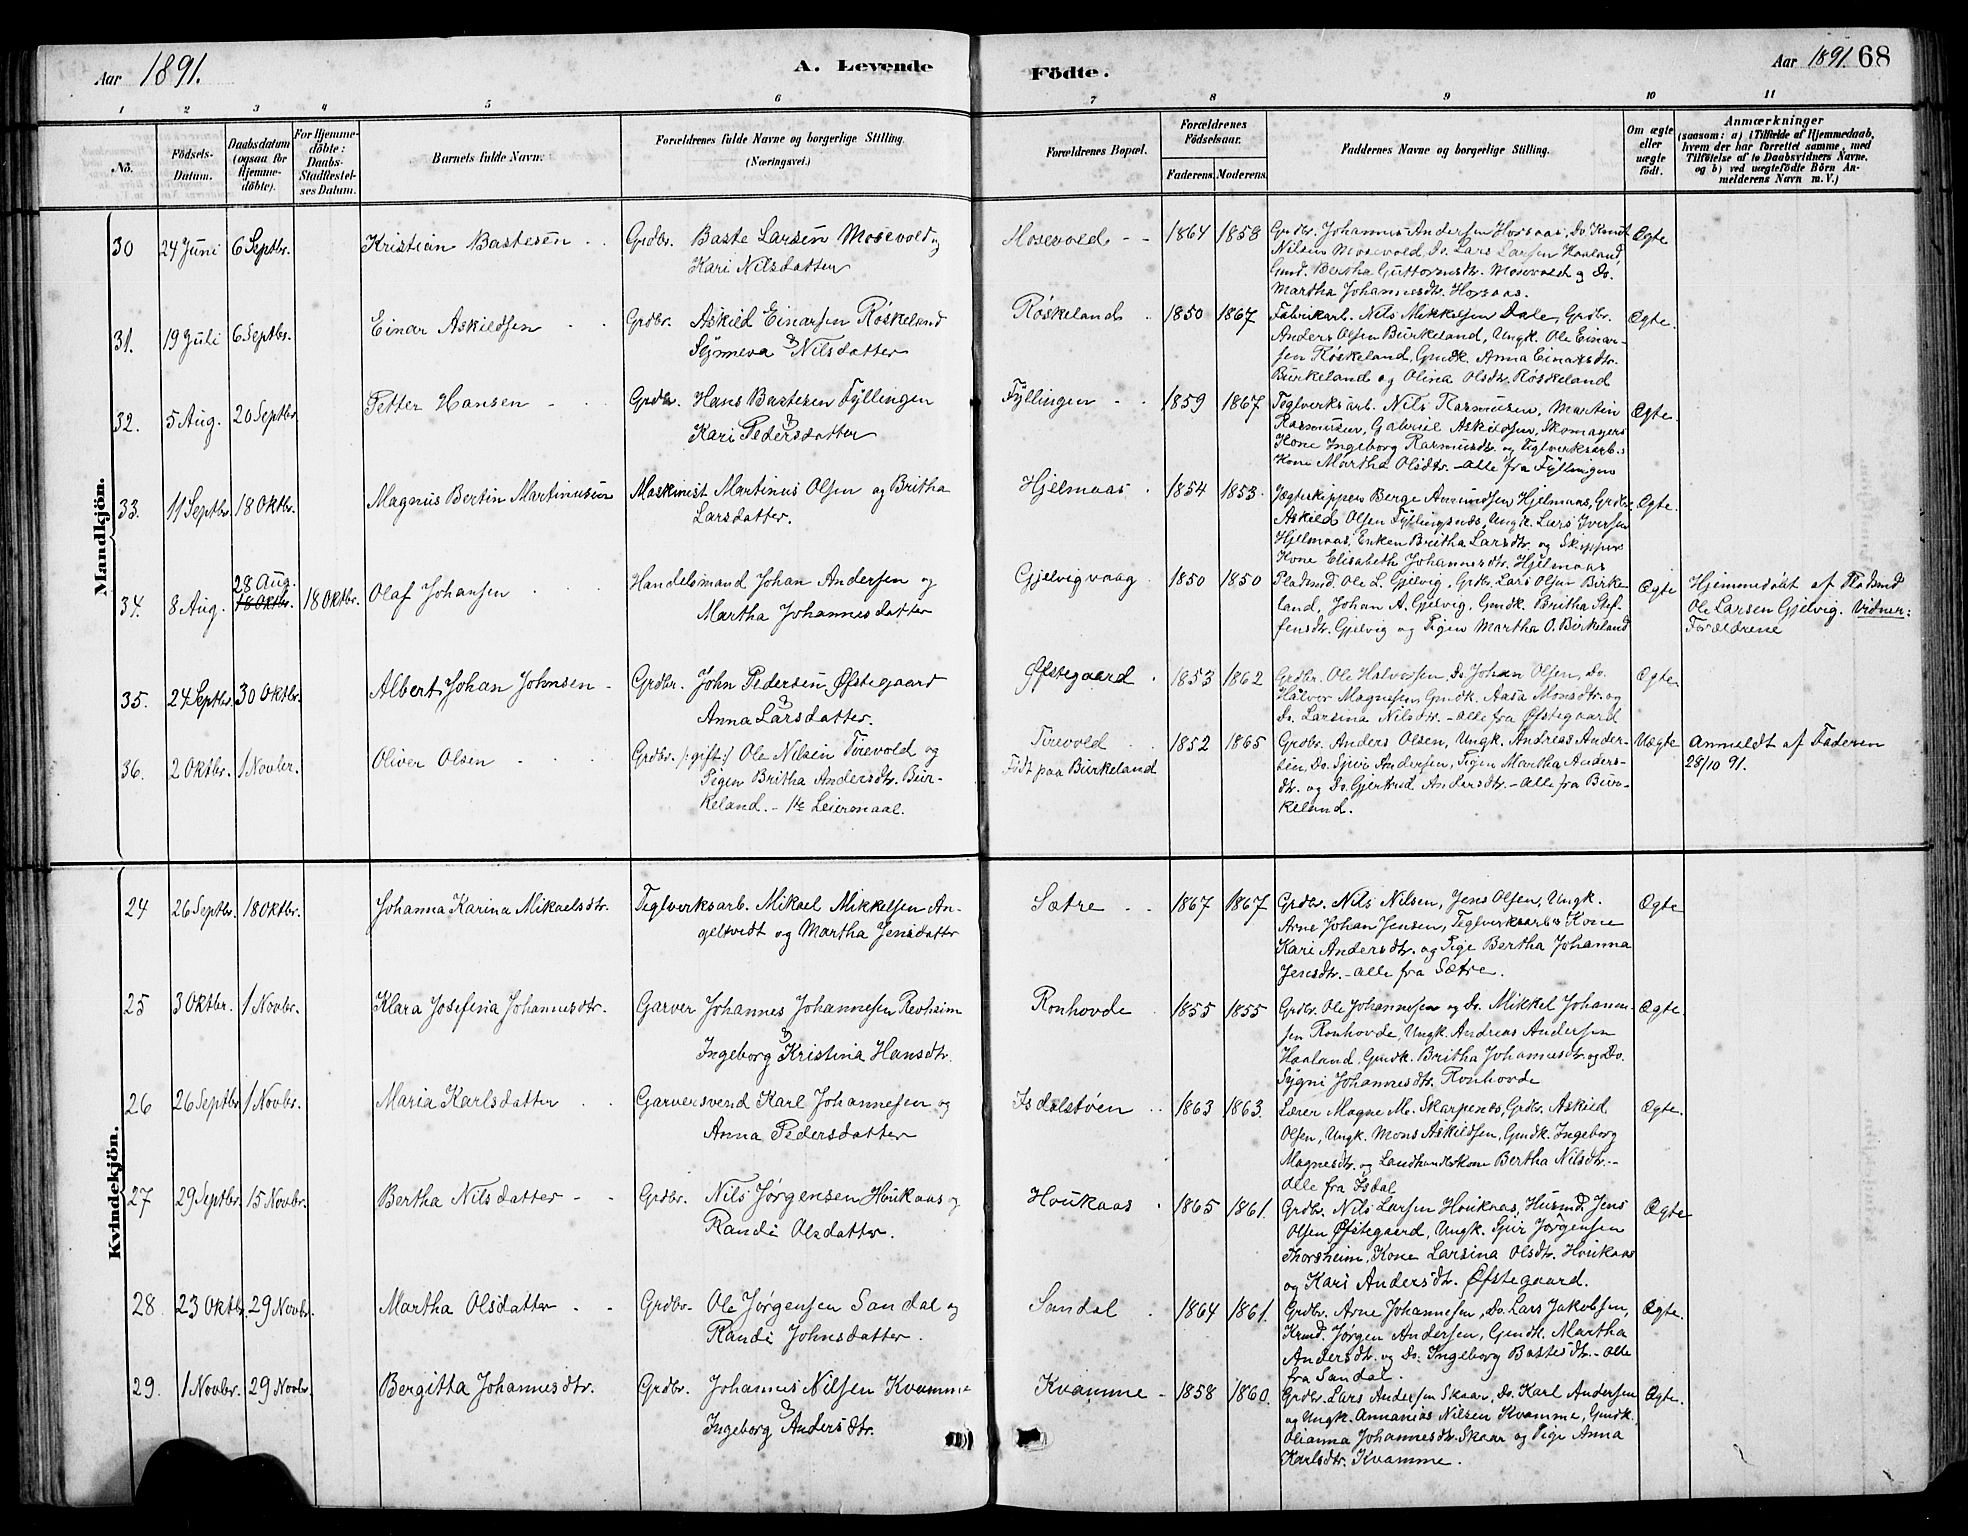 Aar 1891. A. Levende Födte. Aar 1891. 68
1 2 3 4 5 6 7 8 9 10 11
No. Födsels-Datum. Daabsdatum (ogsaa for Hjemme-döbte). For Hjemme-döbte: Daabs-Stadfæstel-ses Datum. Barnets fulde Navn. Forældrenes fulde Navne og borgerlige Stilling. (Næringsvei.) Forældrenes Bopæl. Forældrenes Födselsaar. Faderens. Moderens. Faddernes Navne og borgerlige Stilling. Om ægte eller uægte födt. Anmærkninger (saasom: a) i Tilfælde af Hjemmedaab, hvem der har forrettet samme, med Tilföielse af to Daabsvidners Navne, og b) ved uægtefödte Börn An-melderens Navn m. V.)
Mandkjön.
30 24 Juni 6 Septbr. Kristian Bastesen Grdbr. Baste Larsen Mosevold og Mosevold 1864 1858 Grdbr. Johannes Andersen Horsaas, Do. Knut Ægte
Kari Nilsdatter Nilsen Mosevold, Do. Lars Larsen Haaland,
Gmd. Bertha Guttormsdtr. Mosevold og Do.
Martha Johannesdtr. Horsaas.
31. 19 Juli 6 Septbr. Einar Askildsen Grdbr. Askild Einarsen Røskeland Røskeland 1850 1867 Fabrikarb. Nils Mikkelsen Dale, Grdbr. Ægte.
og Synneva Nilsdatter Anders Olsen Birkeland, Ungk. Ole Einar-
sen Røskeland, Gmdk. Anna Einarsdtr.
Birkeland og Olina Olsdtr. Røskeland
32. 5 Aug. 20 Septbr. Petter Hansen Grdbr. Hans Bastesen Fyllingen Fyllingen 1859 1867 Teglverksarb. Nils Rasmusen, Martin Ægte.
og Kari Pedersdatter Rasmusen, Gabriel Askildsen, Skomagers
Kone Ingeborg Rasmusdtr. og Teglverksarb.s
Kone Martha Olsdtr. - alle fra Fyllingen
33. 11 Septbr. 18 Oktbr. Magnus Bertin Martinusen Maskinist Martinus Olsen og Britha Hjelmaas 1854 1853. Jægteskipper Berge Amundsen Hjelmaas, Grdbr. Ægte.
Larsdatter. Askild Olsen Fyllingsnes, Ungk. Lars Iversen
Hjelmaas, Enken Britha Larsdtr. og Skippers
Kone Elisabeth Johannesdtr. Hjelmaas
34. 8 Aug. 28 Aug. 18 Oktbr. 18 Oktbr. Olaf Johansen Handelsmand Johan Andersen og Gjelvigvaag 1850 1850 Pladsmd Ole L. Gjelvig, Grdbr. Lars Olsen Birke- Ægte Hjemmedøbt af Pladsmd
Martha Johannesdatter land, Johan A. Gjelvig, Gmdk. Britha Stef- Ole Larsen Gjelvig. Vidner:
fensdtr. Gjelvig og Pigen Martha O. Birkeland Forældrene
35. 24 Septbr. 30 Oktbr. Albert Johan Johnsen Grdbr. John Pedersen Øfstegaard Øfstegaard 1853 1862 Grdbr. Ole Halvorsen, Do. Johan Olsen, Do. Ægte
og Anna Larsdatter. Halver Magnesen, Gmdk. Aasa Monsdtr. og
Do. Larsina Nilsdtr. - alle fra Øfstegaard
36. 2 Oktbr. 1 Novbr. Oliver Olsen Grdbr. /:gift:/ Ole Nilsen Tirevold og Tirevold 1852 1865 Grdbr. Anders Olsen, Ungk. Andreas Ander- Uægte Anmeldt af Faderen
Pigen Britha Andersdtr. Bir- Født paa Birkeland sen, Do. Sjur Andersen, Pigen Martha Anders- 28/10 91.
keland. - 1te Leiermaal. dtr. og Do. Gjertrud Andersdtr. - alle fra Bir-
keland.
Kvindekjön.
24 26 Septbr. 18 Oktbr. Johanna Karina Mikaelsdtr. Teglverksarb. Mikael Mikkelsen An- Sætre 1867 1867 Grdbr. Nils Nilsen, Jens Olsen, Ungk. Ægte
geltvedt og Martha Jensdatter Arne Johan Jensen, Teglverksarb.s Kone
Kari Andersdtr. og Pige Bertha Johanna
Jensdtr. - alle fra Sætre.
25 3 Oktbr. 1 Novbr. Klara Josefina Johannesdtr. Garver Johannes Johannesen Revheim Ronhovde 1855 1855 Grdbr. Ole Johannesen og Do. Mikkel Johanne- Ægte.
og Ingeborg Kristina Hansdtr. sen Ronhovde, Ungk. Andreas Andersen
Haaland, Gmdk. Britha Johannesdtr. og Do.
Sygni Johannesdtr. Ronhovde
26 26 Septbr 1 Novbr. Maria Karlsdatter Garversvend Karl Johannesen og Isdalstøen 1863 1863. Lærer Magne M. Skarpenes, Grdbr. Askild Ægte.
Anna Pedersdatter Olsen, Ungk. Mons Askildsen, Gmdk. Ingeborg
Magnesdtr. og Landhandlerkone Bertha Nilsdtr. -
alle fra Isdal
27 29 Septbr. 15 Novbr. Bertha Nilsdatter Grdbr. Nils Jørgensen Houkaas og Houkaas 1865 1861. Grdbr. Nils Larsen Houkaas, Husmd. Jens Ægte
Randi Olsdatter. Olsen Øfstegaard, Ungk. Sjur Jørgensen
Thorsheim, Kone Larsina Olsdtr. Houkaas
og Kari Andersdtr. Øfstegaard.
28 23 Oktbr. 29 Novbr. Martha Olsdatter Grdbr. Ole Jørgensen Sandal og Sandal 1864 1861. Grdbr. Arne Johannesen, Do. Lars Jakobsen, Ægte.
Randi Johnsdatter. Jørgen Andersen, Gmdk. Martha
Andersdtr. og Do. Ingeborg Bastesdtr. - alle
fra Sandal.
29. 1 Novbr. 29 Novbr. Bergitta Johannesdtr. Grdbr. Johannes Nilsen Kvamme Kvamme 1858 1860. Grdbr. Lars Andersen Skaar, Do. Karl Andersen Ægte.
og Ingeborg Andersdtr. og Ungk. Annanias Nilsen Kvamme, Gmdk.
Olianna Johannesdtr. Skaar og Pige Anna
Karlsdtr. Kvamme.